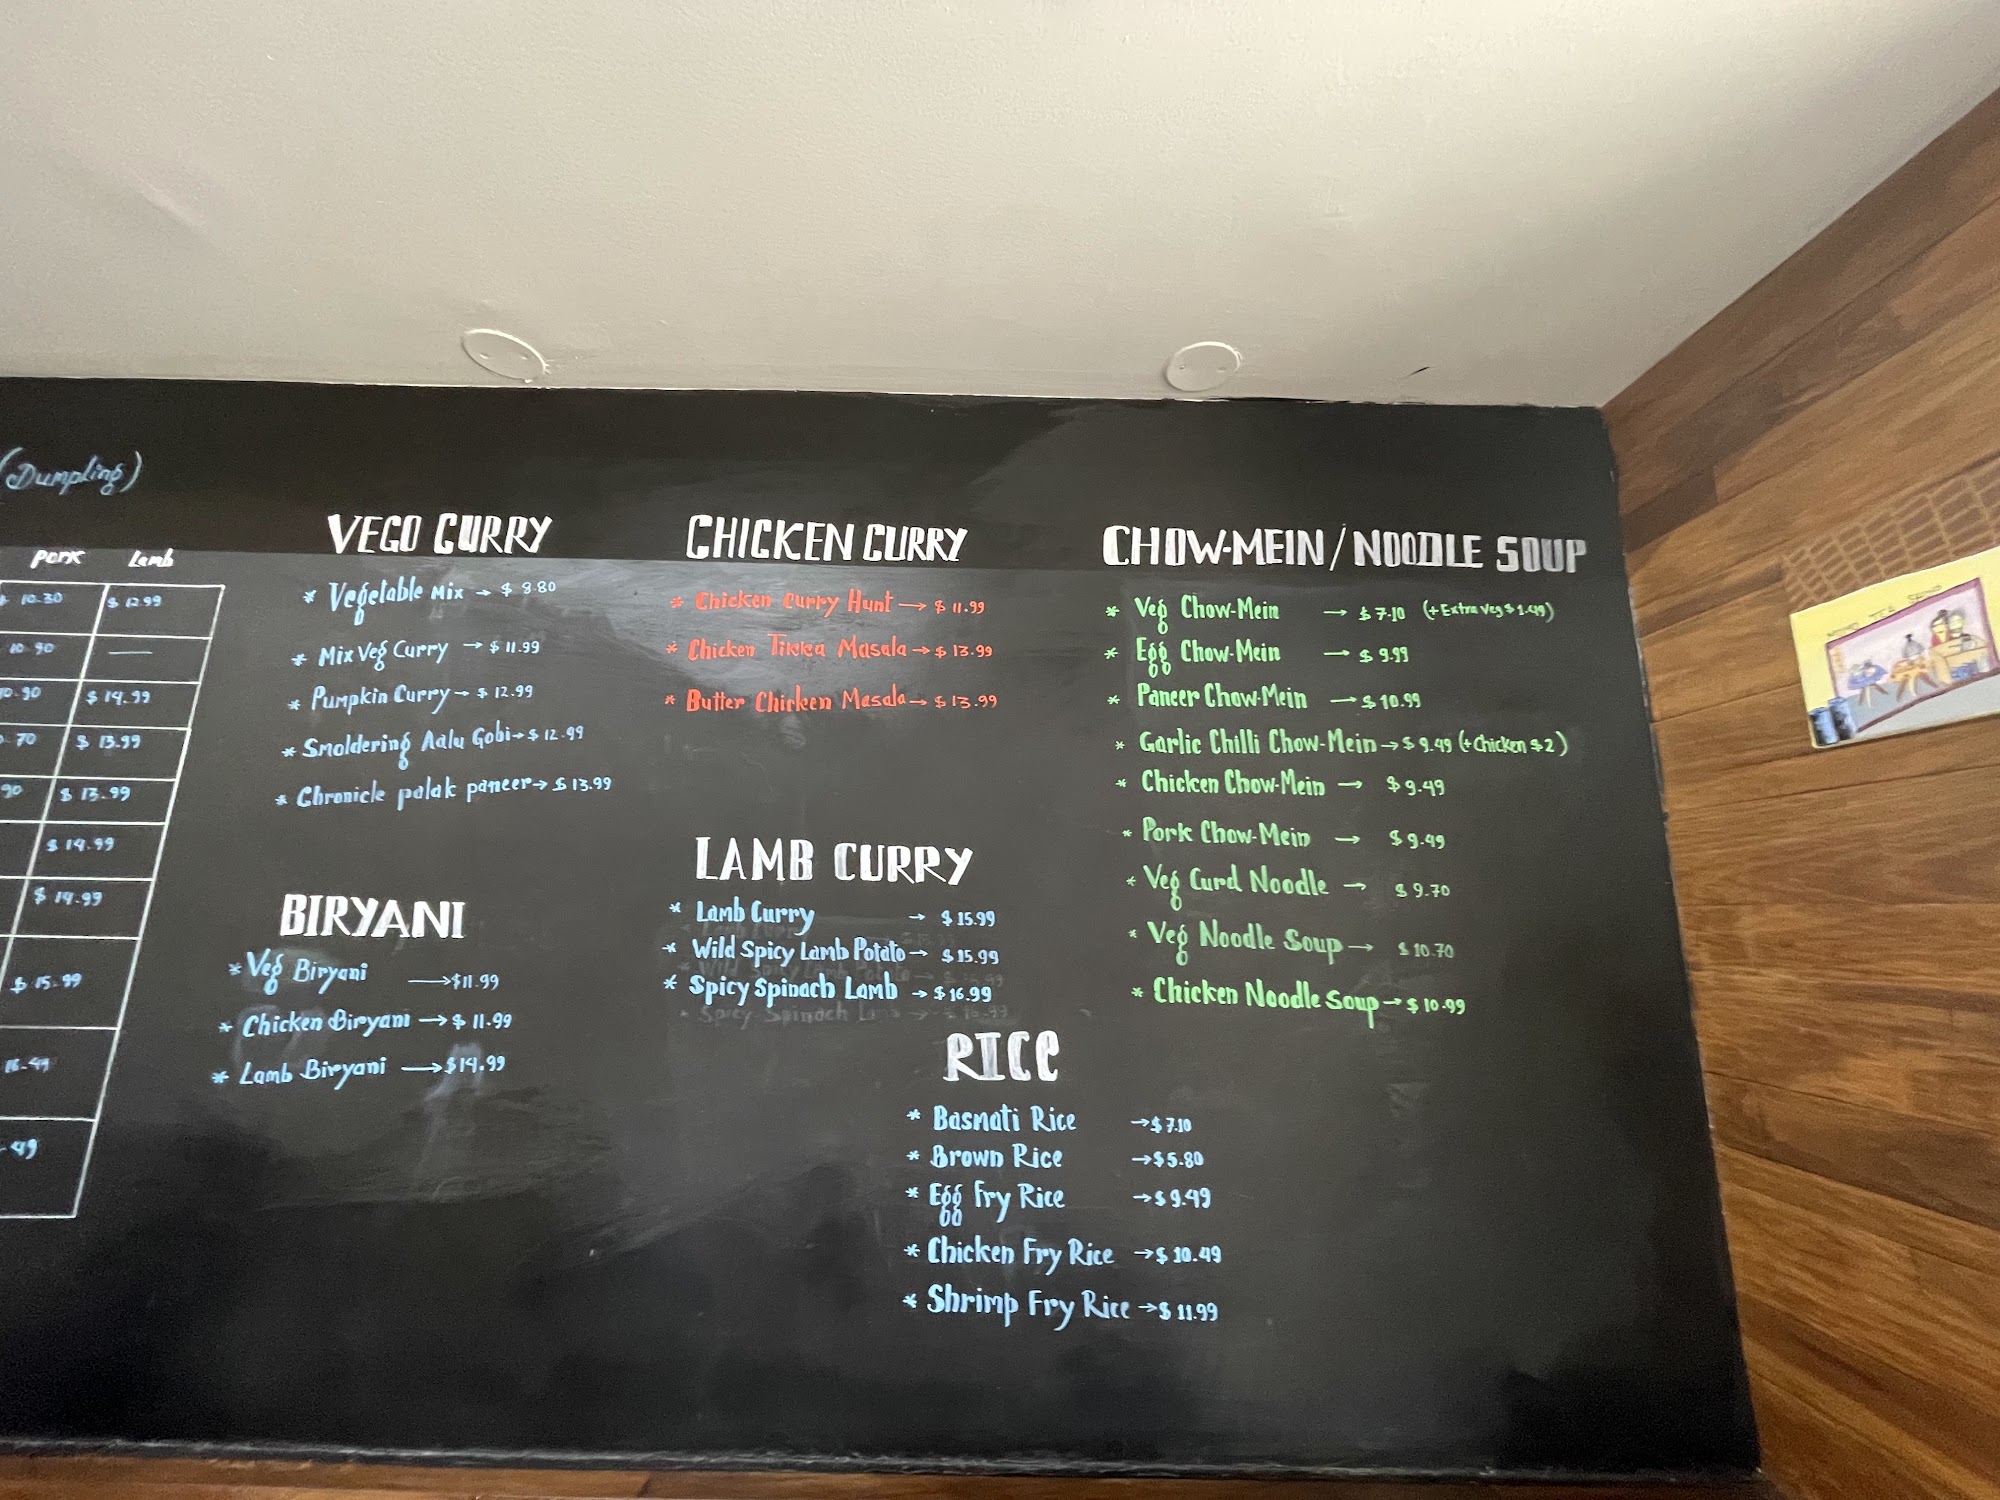 (Dumpling)
Pork Lamb
$ 10.30 $ 12.99
10.90 —
10.90 $ 14.99
.70 $ 13.99
90 $ 13.99
$ 14.99
$ 14.99
$ 15.99
.49
.49
VEGO CURRY
* Vegetable Mix → $ 8.80
* Mix Veg Curry → $ 11.99
* Pumpkin Curry → $ 12.99
* Smoldering Aalu Gobi → $ 12.99
* Chronicle palak paneer → $ 13.99
BIRYANI
* Veg Biryani → $11.99
* Chicken Biryani → $ 11.99
* Lamb Biryani → $14.99
CHICKEN CURRY
* Chicken Curry Hunt → $ 11.99
* Chicken Tikka Masala → $ 13.99
* Butter Chicken Masala → $ 13.99
LAMB CURRY
* Lamb Curry → $ 15.99
* Wild Spicy Lamb Potato → $ 15.99
* Spicy Spinach Lamb → $ 16.99
CHOW-MEIN / NOODLE SOUP
* Veg Chow-Mein → $ 7.10 (+ Extra Veg $ 1.49)
* Egg Chow-Mein → $ 9.99
* Paneer Chow-Mein → $ 10.99
* Garlic Chilli Chow-Mein → $ 9.49 (+ Chicken $ 2)
* Chicken Chow-Mein → $ 9.49
* Pork Chow-Mein → $ 9.49
* Veg Curd Noodle → $ 9.70
* Veg Noodle Soup → $ 10.70
* Chicken Noodle Soup → $ 10.99
RICE
* Basmati Rice → $ 7.10
* Brown Rice → $ 5.80
* Egg Fry Rice → $ 9.49
* Chicken Fry Rice → $ 10.49
* Shrimp Fry Rice → $ 11.99